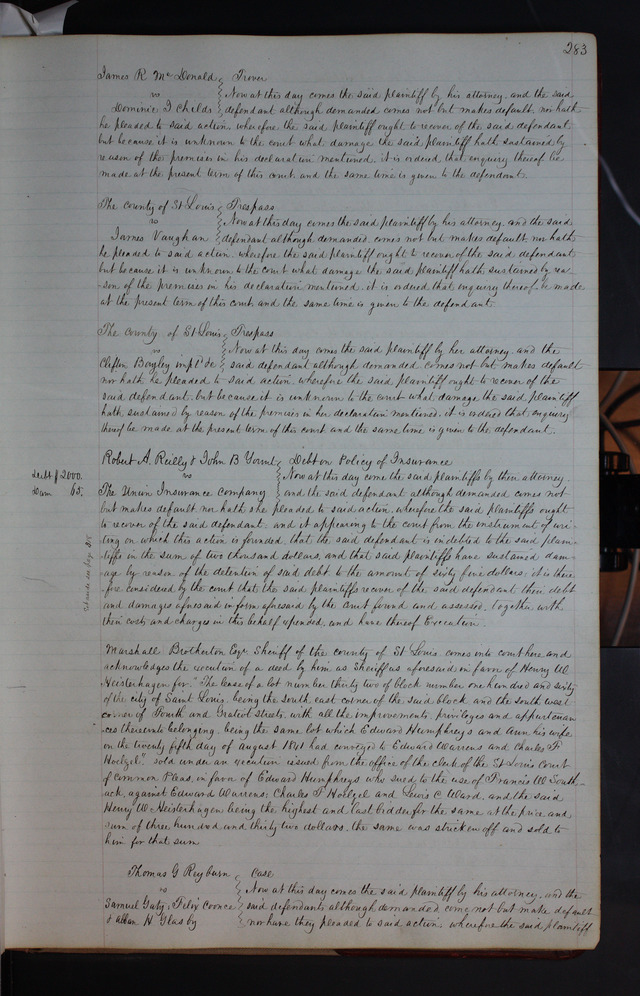 283
James R. McDonald } Trover
vs } Now at this day comes the said plaintiff by his attorney, and the said
Dominic J Childs } defendant although demanded comes not but makes default, nor hath
he pleaded to said action, wherefore the said plaintiff ought to recover of the said defendant
but because it is unknown to the court what damage the said plaintiff hath sustained by
reason of the premises in his declaration mentioned, it is ordered that enquiry thereof be
made at the present term of this court and the same time is given to the defendant.
The County of St Louis } Trespass
vs } Now at this day comes the said plaintiff by his attorney, and the said
James Vaughan } defendant although demanded, comes not but makes default, nor hath
he pleaded to said action, wherefore the said plaintiff ought to recover of the said defendant
but because it is unknown to the court what damage the said plaintiff hath sustained by rea-
son of the premises in his declaration mentioned, it is ordered that inquiry thereof be made
at the present term of this court and the same time is given to the defendant.
The County of St Louis } Trespass
vs } Now at this day comes the said plaintiff by her attorney, and the
Clifton Bayley impl'd &c } said defendant although demanded comes not but makes default
nor hath he pleaded to said action, wherefore the said plaintiff ought to recover of the
said defendant, but because it is unknown to the court what damage the said plaintiff
hath sustained by reason of the premises in her declaration mentioned, it is ordered that enquiry
thereof be made at the present term of this court and the same time is given to the defendant.
Robert A. Reilly & John B } Debt on Policy of Insurance
vs } Now at this day come the said plaintiffs by their attorney,
Debt $2000.
Dam 65.
The Union Insurance Company } and the said defendant although demanded comes not
but makes default nor hath she pleaded to said action, wherefore the said plaintiffs ought
to recover of the said defendant, and it appearing to the court from the instrument of wri-
ting on which this action is founded, that the said defendant is indebted to the said plain-
tiffs in the sum of two thousand dollars, and that said plaintiffs have sustained dam-
age by reason of the detention of said debt to the amount of sixty five dollars; it is there-
fore considered by the court that the said plaintiffs recover of the said defendant their debt
and damages aforesaid in form aforesaid by the Court found and assessed, together with
their costs and charges in this behalf expended, and have thereof Execution.
Set aside see page
Marshall Brotherton Esqr Sheriff of the county of St Louis comes into court here and
acknowledges the execution of a deed by him as Sheriff as aforesaid in favor of Henry W
Heisterhagen for "The lease of a lot number thirty two of block number one hundred and sixty
of the city of Saint Louis, being the south east corner of the said block and the south west
corner of Fourth and Gratiot streets, with all the improvements, privileges and appurtenan-
ces thereunto belonging, being the same lot which Edward Humphreys and Ann his wife
on the twenty fifth day of August 1841 had conveyed to Edward Warrens and Charles F
Hoelzel", sold under an execution issued from the office of the clerk of the St Louis Court
of Common Pleas, in favor of Edward Humphreys who sued to the use of Francis W South-
ack, against Edward Warrens, Charles F Hoelzel and Lewis C Ward, and the said
Henry W Heisterhagen being the highest and last bidder for the same at the price and
sum of three hundred and thirty two dollars, the same was stricken off and sold to
him for that sum
Thomas G Reyburn } Case
vs } Now at this day comes the said plaintiff by his attorney, and the
Samuel Gaty, Felix Coonce } said defendants although demanded come not but make default
& Allan H Glasby } nor have they pleaded to said action, wherefore the said plaintiff